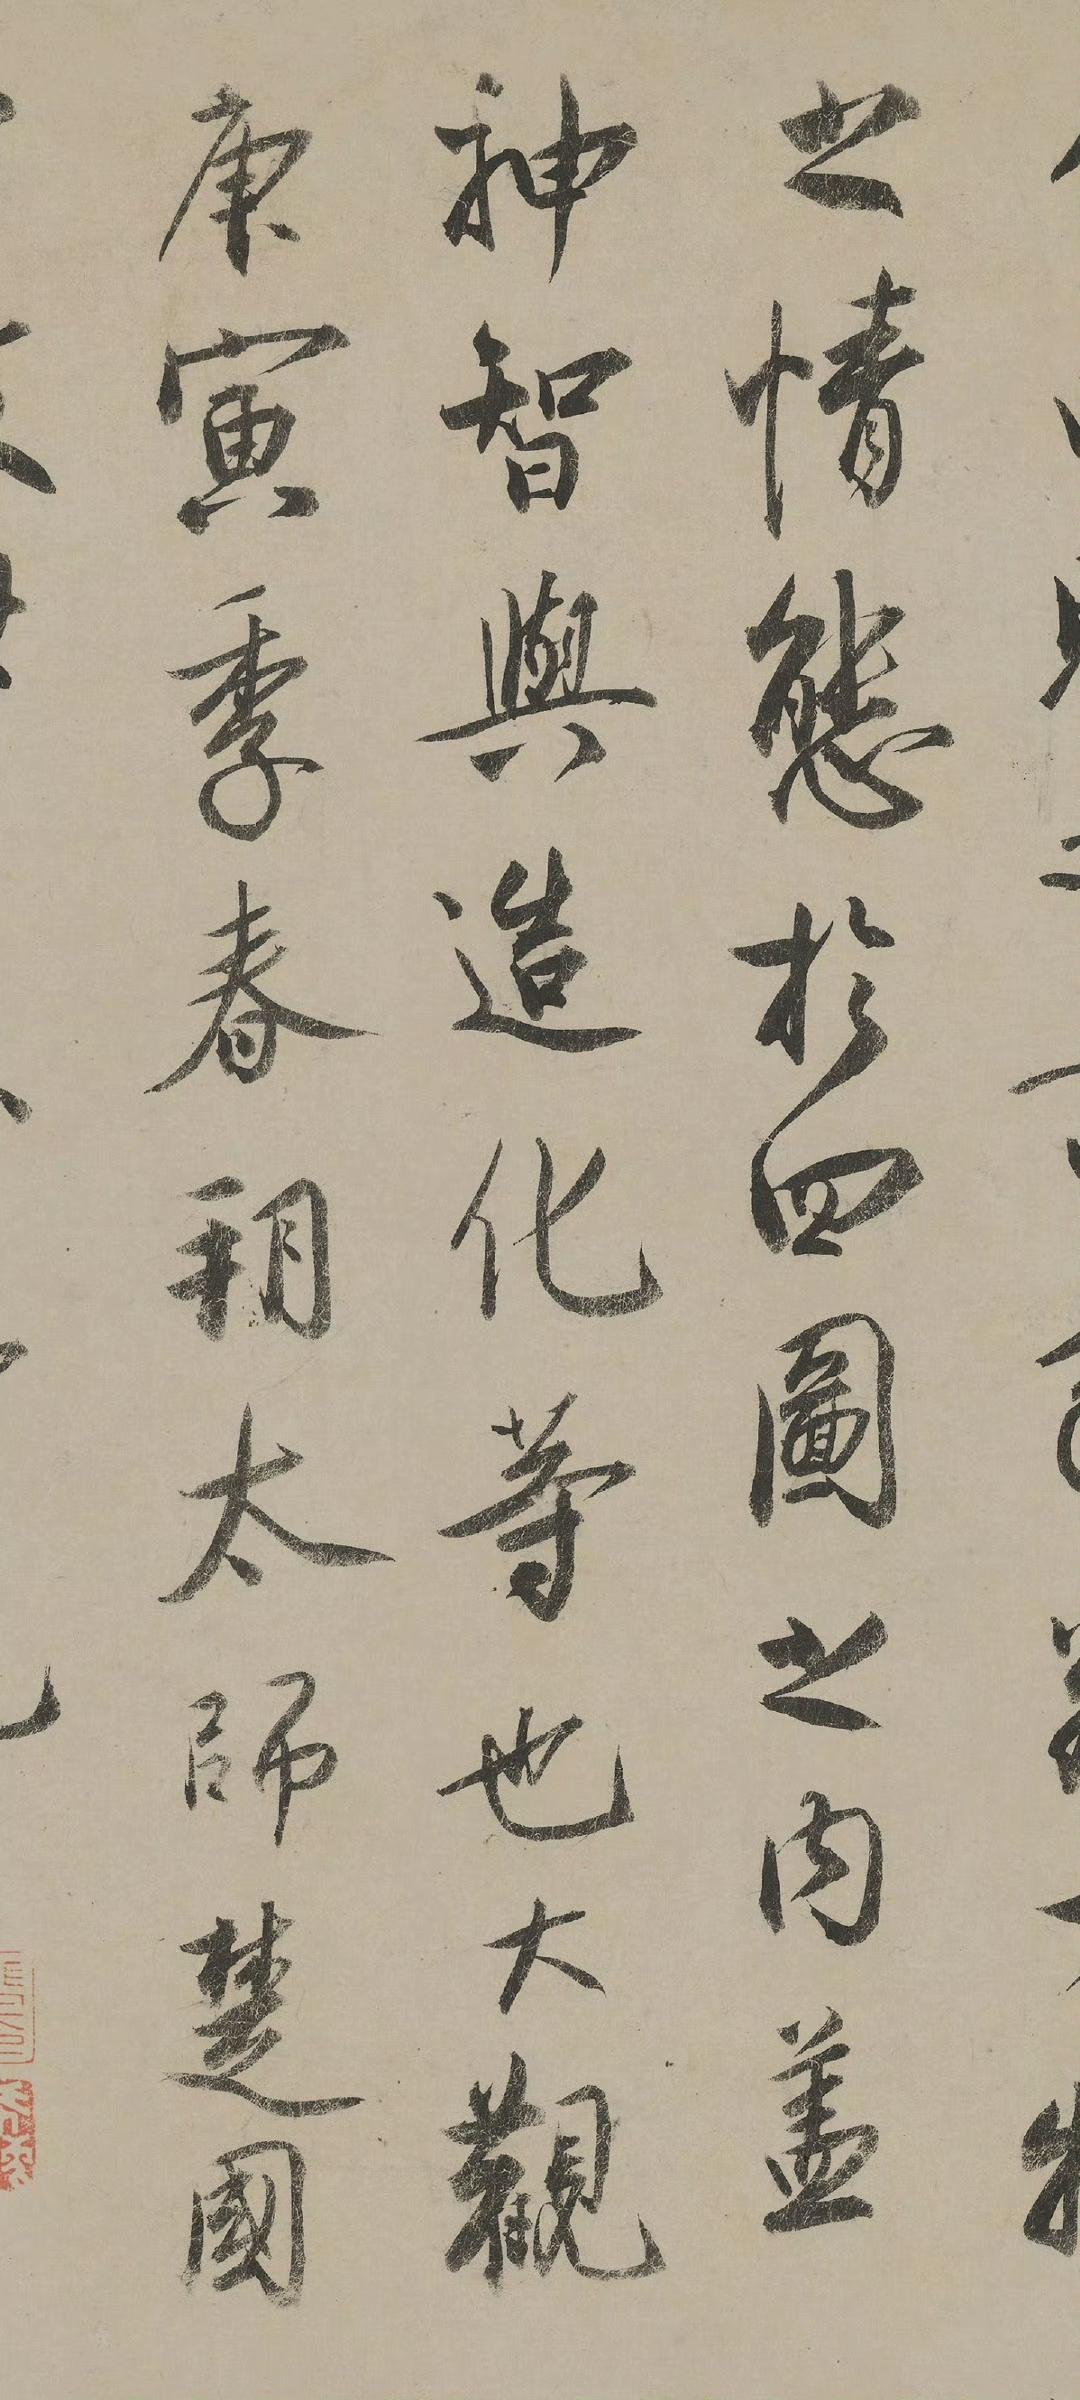 之情態於四圖之內蓋
神智與造化等也大觀
庚寅季春朔太師楚國